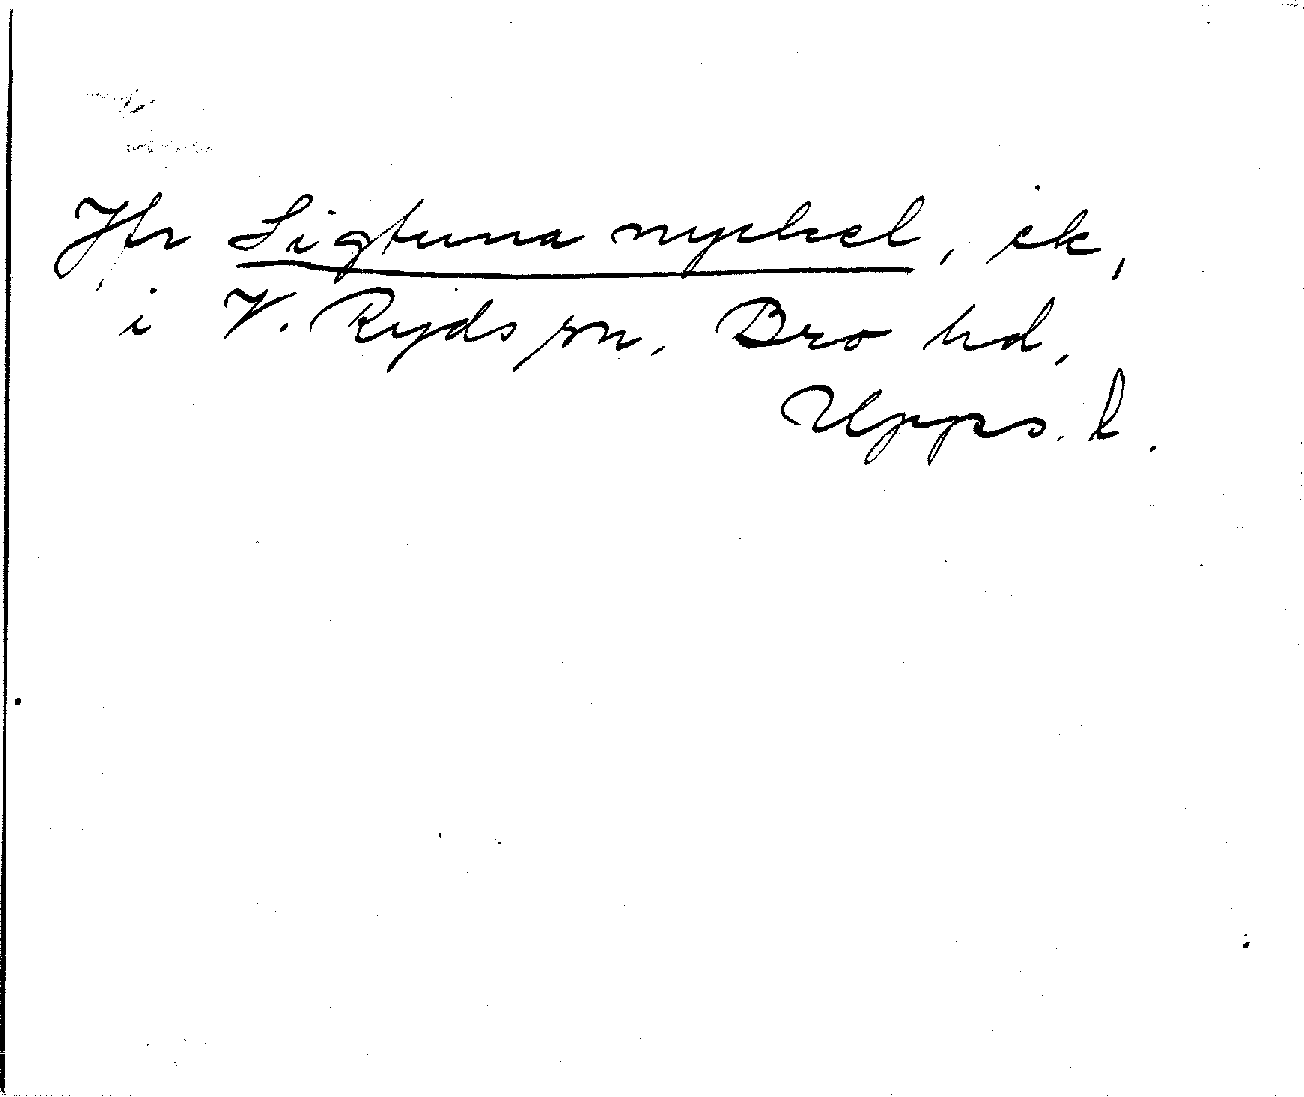 Jfr Sigtuna nyckel, ek,
i V. Ryds sn, Bro hd,
Upps. l.